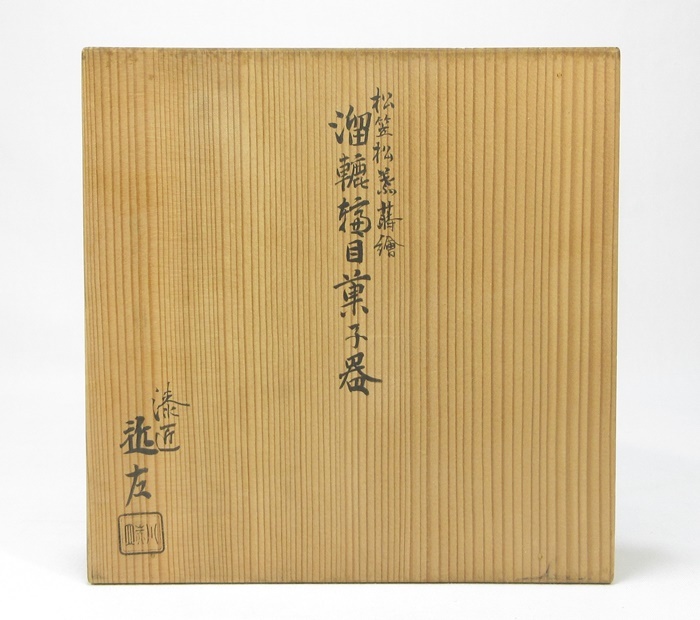 松笠松葉蒔繪
溜轆轤目菓子器
漆匠
近左